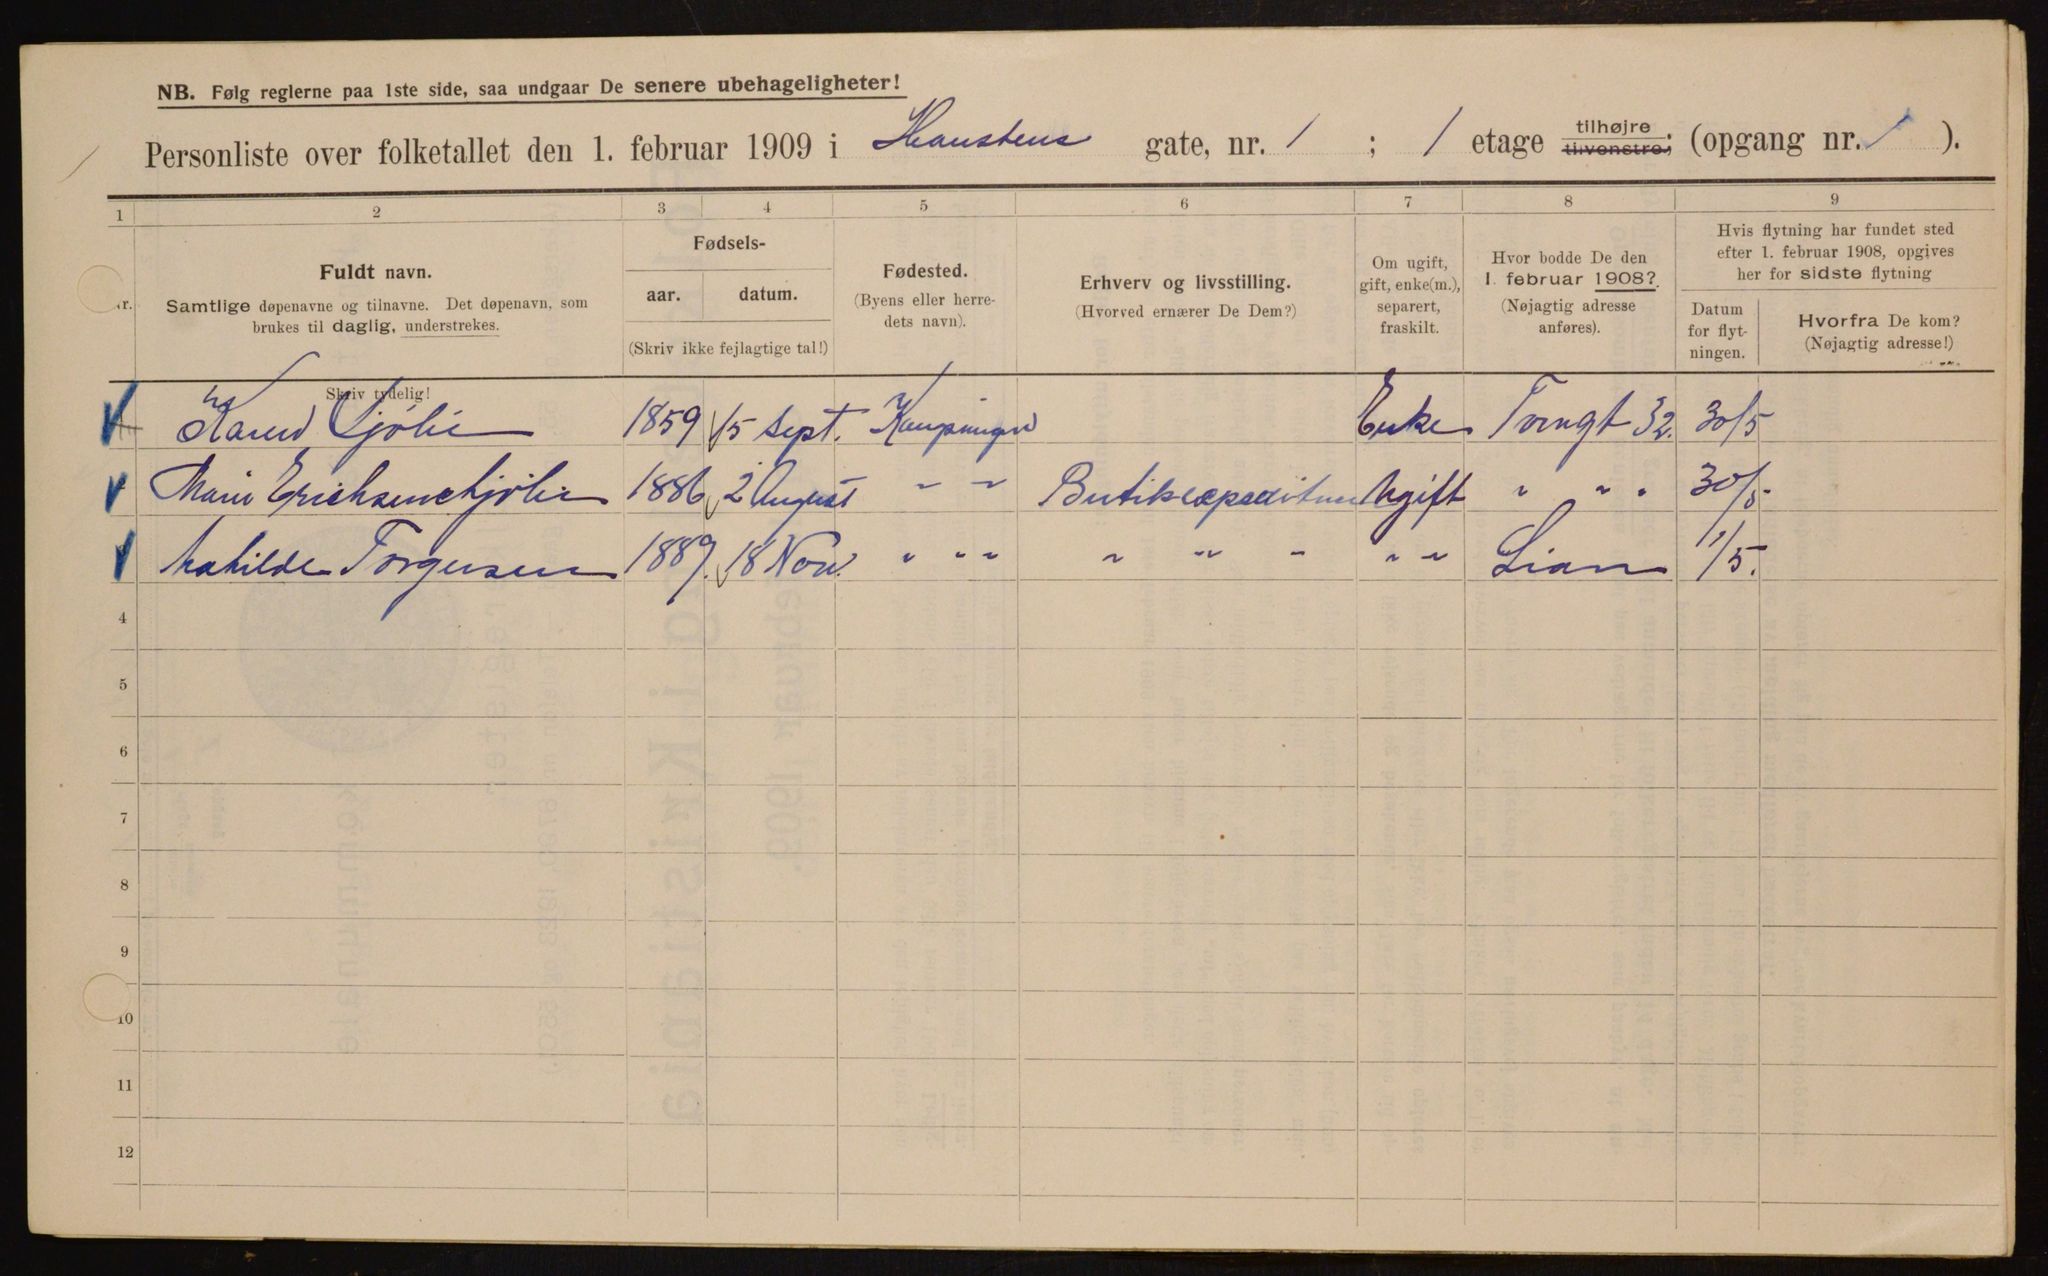 NB. Følg reglerne paa 1ste side, saa undgaar De senere ubehageligheter!
Personliste over folketallet den 1. februar 1909 i Hanstens gate, nr. 1 ; 1 etage tilhøjre tilvenstre; (opgang nr. 1 ).
1 2 3 4 5 6 7 8 9
Nr.
Fuldt navn.
Samtlige døpenavne og tilnavne. Det døpenavn, som
brukes til daglig, understrekes.
Skriv tydelig!
Fødsels-
aar. datum.
(Skriv ikke fejlagtige tal!)
Fødested.
(Byens eller herre-
dets navn).
Erhverv og livsstilling.
(Hvorved ernærer De Dem?)
Om ugift,
gift, enke(m.),
separert,
fraskilt.
Hvor bodde De den
1. februar 1908?
(Nøjagtig adresse
anføres).
Hvis flytning har fundet sted
efter 1. februar 1908, opgives
her for sidste flytning
Datum
for flyt-
ningen.
Hvorfra De kom?
(Nøjagtig adresse!)
Karen Sjölie 1859 15 Sept. Enke Torvgt 32. 30/5
Marie Erichsen Sjölie 1886 2 August " " Butikexpeditrice Ugift " " " 30/5
Mathilde Torgersen 1889. 18 Nov. " " " " " " " " Lian 1/5.
4
5
6
7
8
9
10
11
12